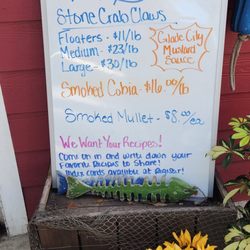 Stone Crab Claws
Floaters - $11/lb
Medium - $23/lb
Large - $30/lb
Glade City
Mustard
Sauce
Smoked Cobia - $16.00/lb
Smoked Mullet - $8.00/ea
We Want Your Recipes!
Come on in and write down your
Favorite Recipes to Share!
Index cards available at Register!